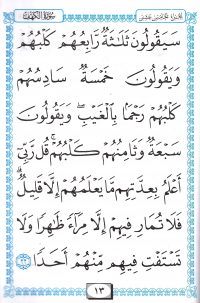 الجزء الخامس عشر
سورة الكهف
سَيَقُولُونَ ثَلَٰثَةٌ رَّابِعُهُمْ كَلْبُهُمْ
وَيَقُولُونَ خَمْسَةٌ سَادِسُهُمْ
كَلْبُهُمْ رَجْمًۢا بِٱلْغَيْبِۖ وَيَقُولُونَ
سَبْعَةٌ وَثَامِنُهُمْ كَلْبُهُمْۚ قُل رَّبِّىٓ
أَعْلَمُ بِعِدَّتِهِم مَّا يَعْلَمُهُمْ إِلَّا قَلِيلٌۗ
فَلَا تُمَارِ فِيهِمْ إِلَّا مِرَآءً ظَٰهِرًا وَلَا
تَسْتَفْتِ فِيهِم مِّنْهُمْ أَحَدًا ٢٢
١٣